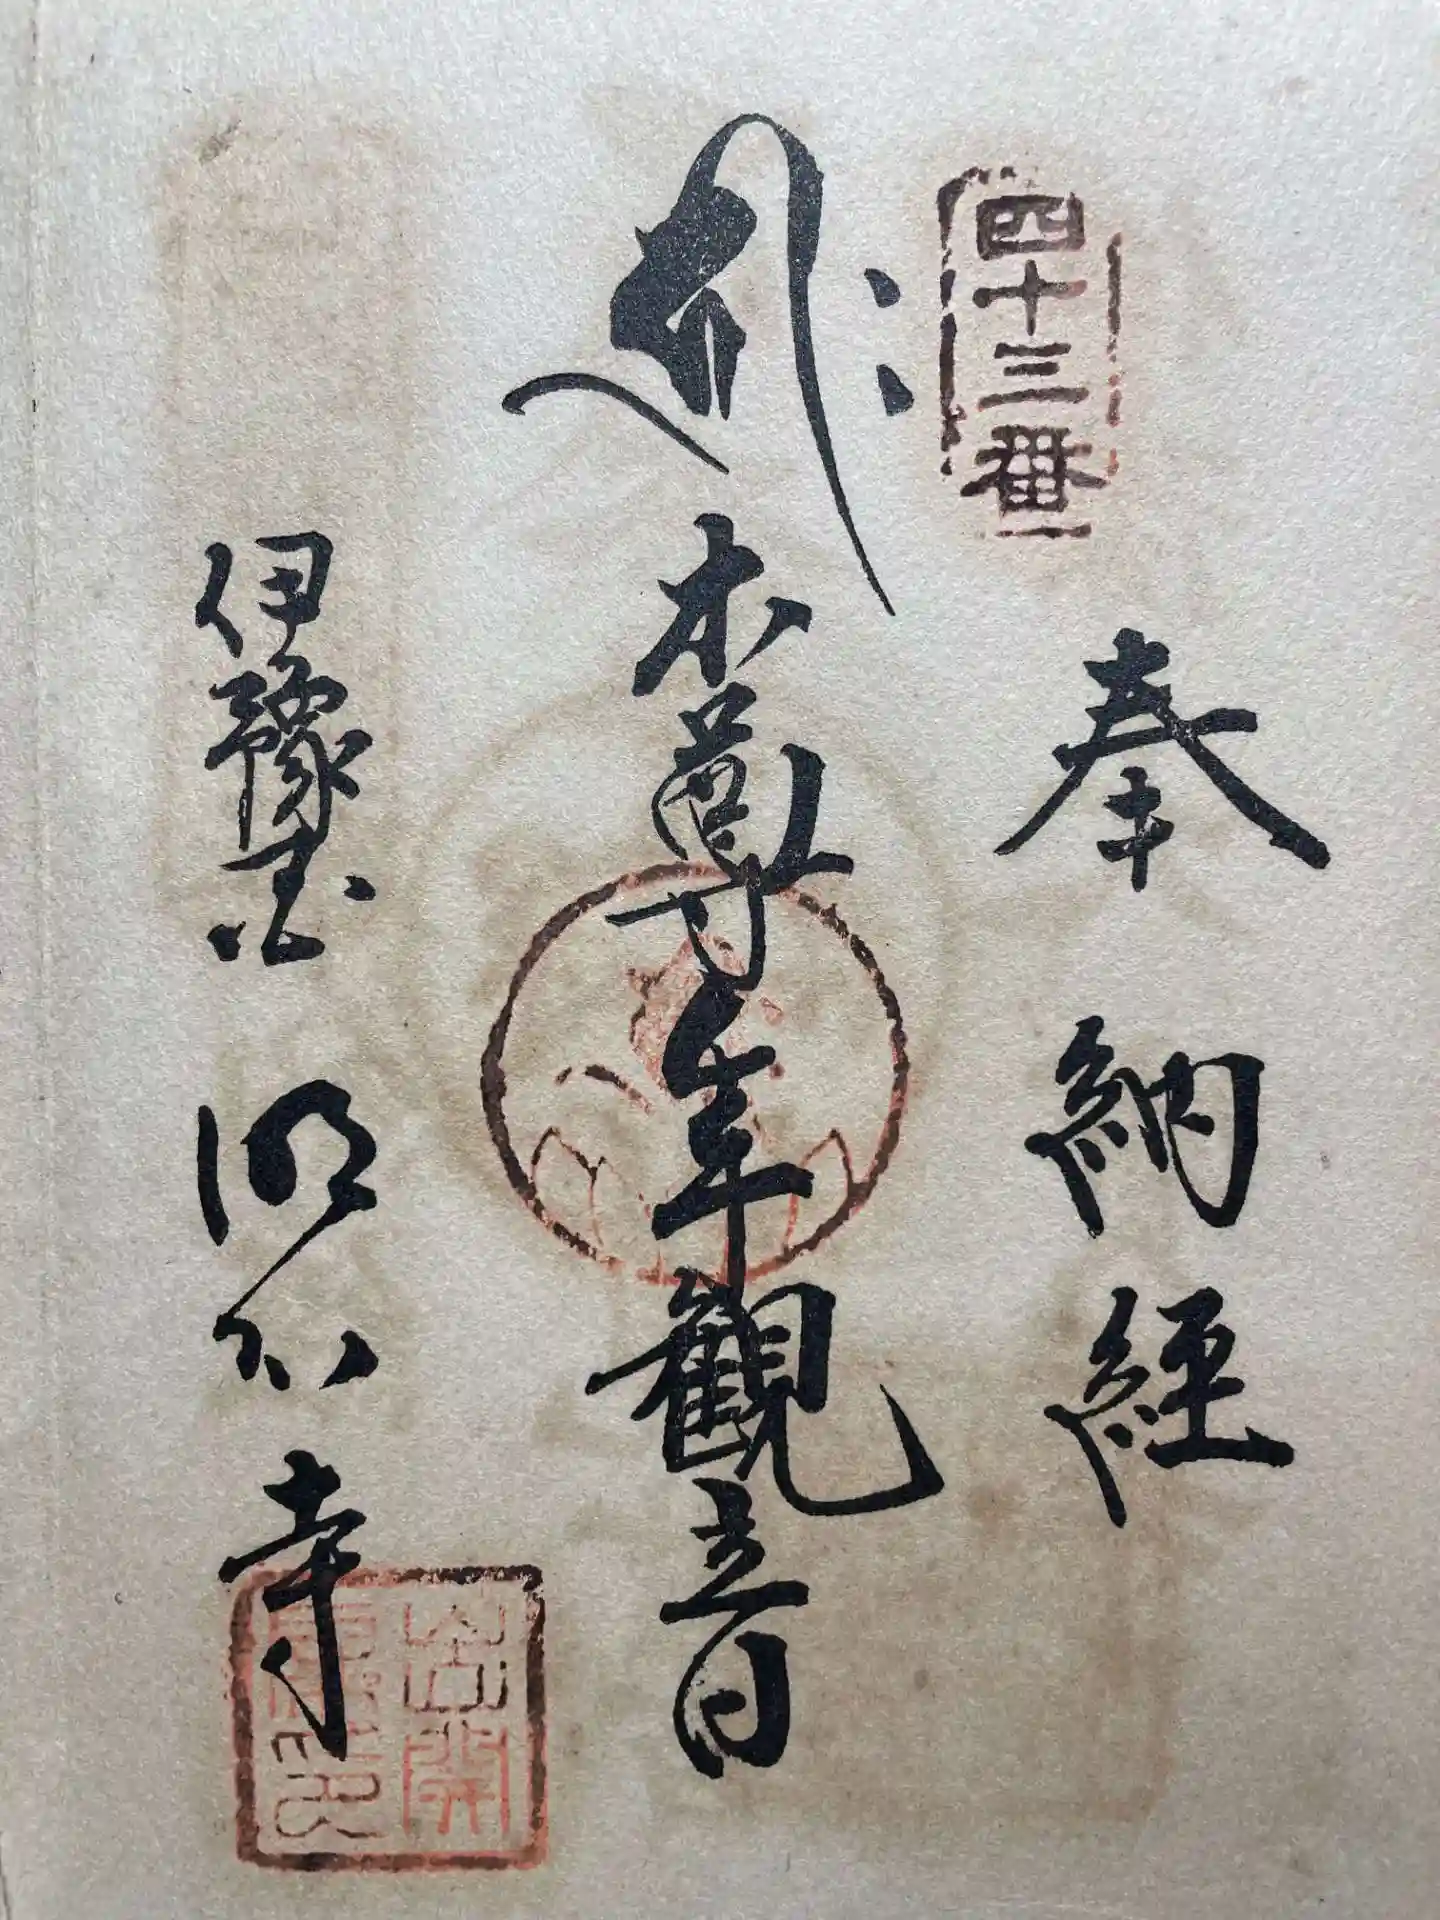 四十三番
奉納経
本尊千手觀音
伊豫国 明石寺